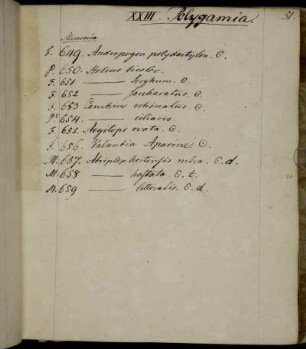 XXIII. Polygamia. 51
Monœcia
S. 649. Andropogon polydactylon. C.
P. 650. Holcus bicolor.
S. 651 —— Sorghum. C.
S. 652 —— saccharatus. C.
S. 653 Cenchrus echinatus. C.
P. 654. —— ciliaris.
S. 655. Aegilops ovata. C.
S. 656. Valantia Aparine. C.
M. 657. Atriplex hortensis rubra. C. d.
M. 658 —— hastata. C. t.
M. 659 —— littoralis. C. d.